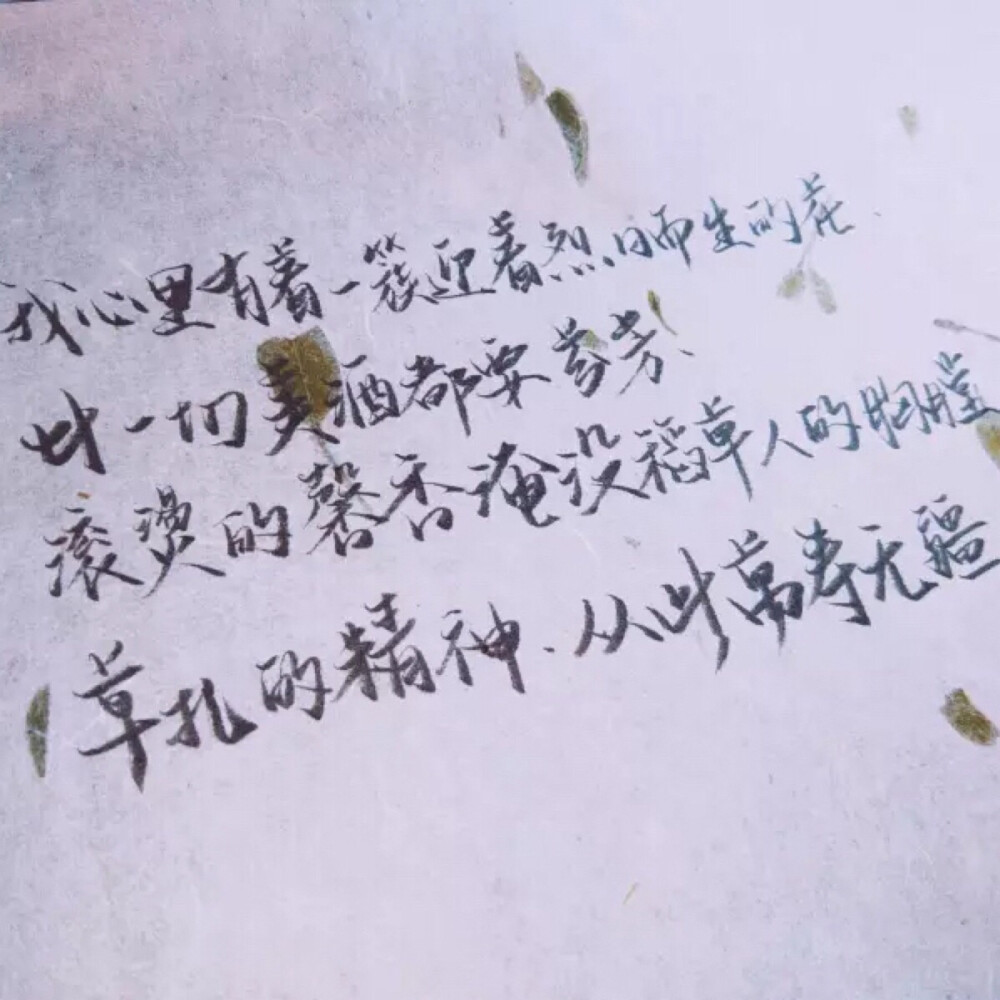 我心里有着一簇迎着烈日而生的花.
比一切美酒都要芬芳、
滚烫的馨香淹没稻草人的胸膛
草扎的精神.从此萬寿无疆